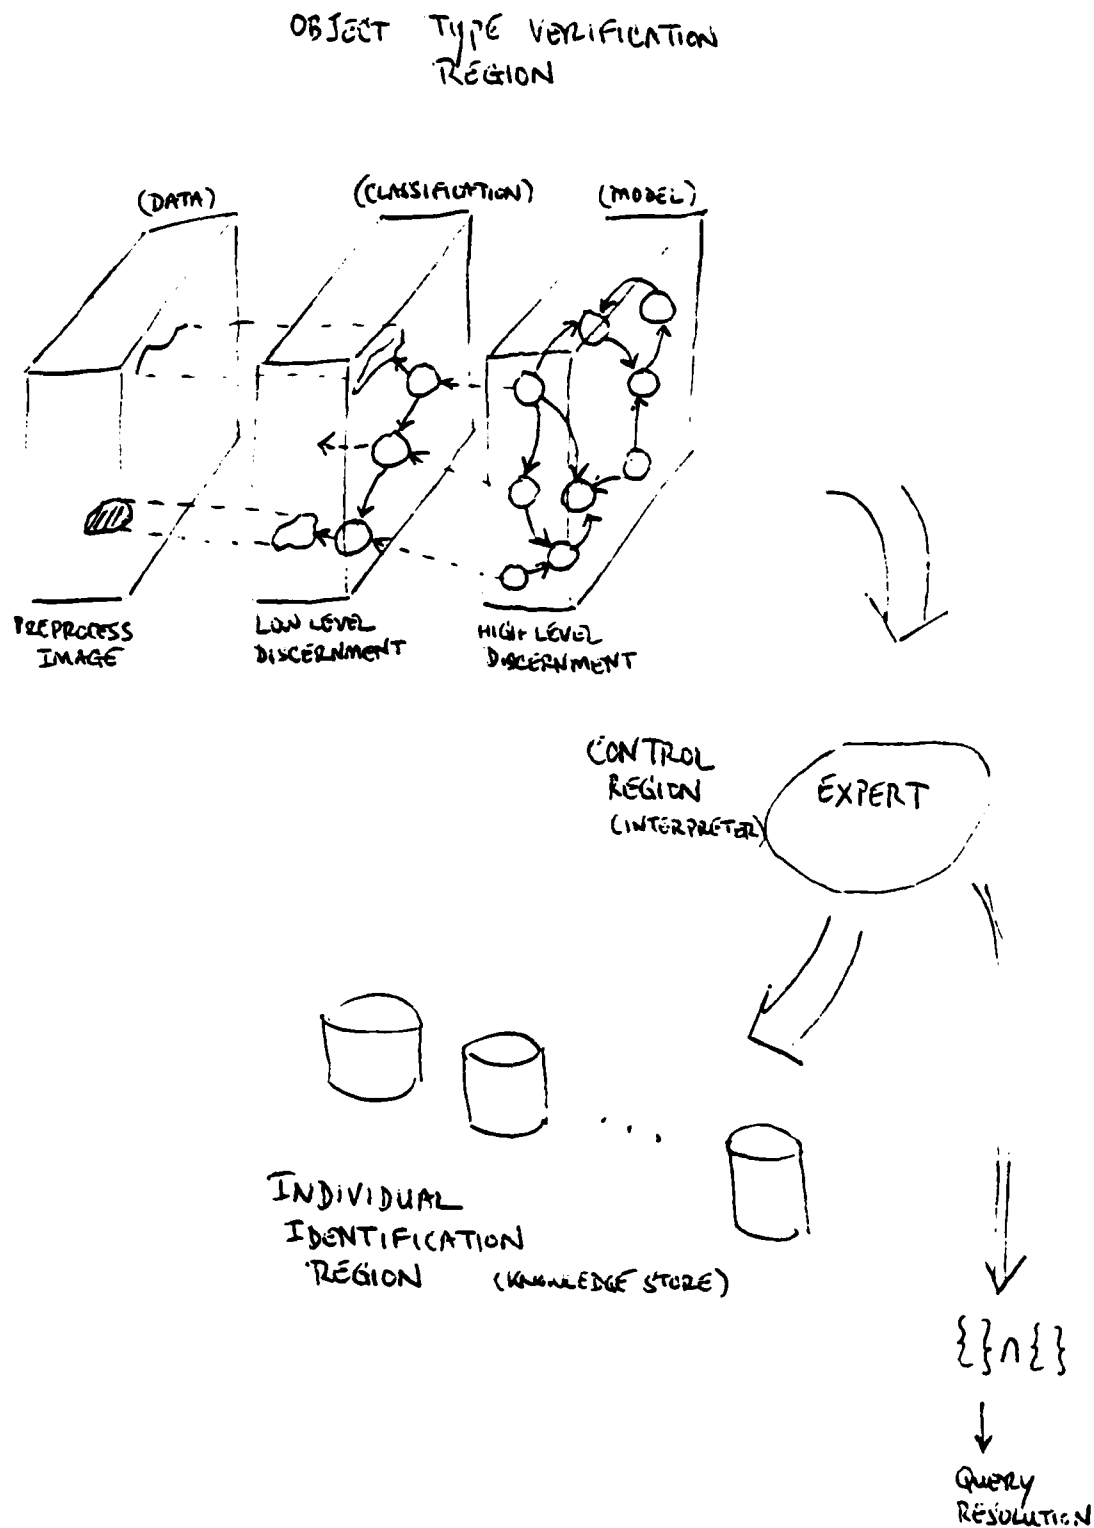 OBJECT TYPE VERIFICATION
REGION
(DATA)
(CLASSIFICATION)
(MODEL)
PREPROCESS
IMAGE
LOW LEVEL
DISCERNMENT
HIGH LEVEL
DISCERNMENT
CONTROL
REGION
(INTERPRETER)
EXPERT
INDIVIDUAL
IDENTIFICATION
REGION (KNOWLEDGE STORE)
{}∩{}
QUERY
RESOLUTION